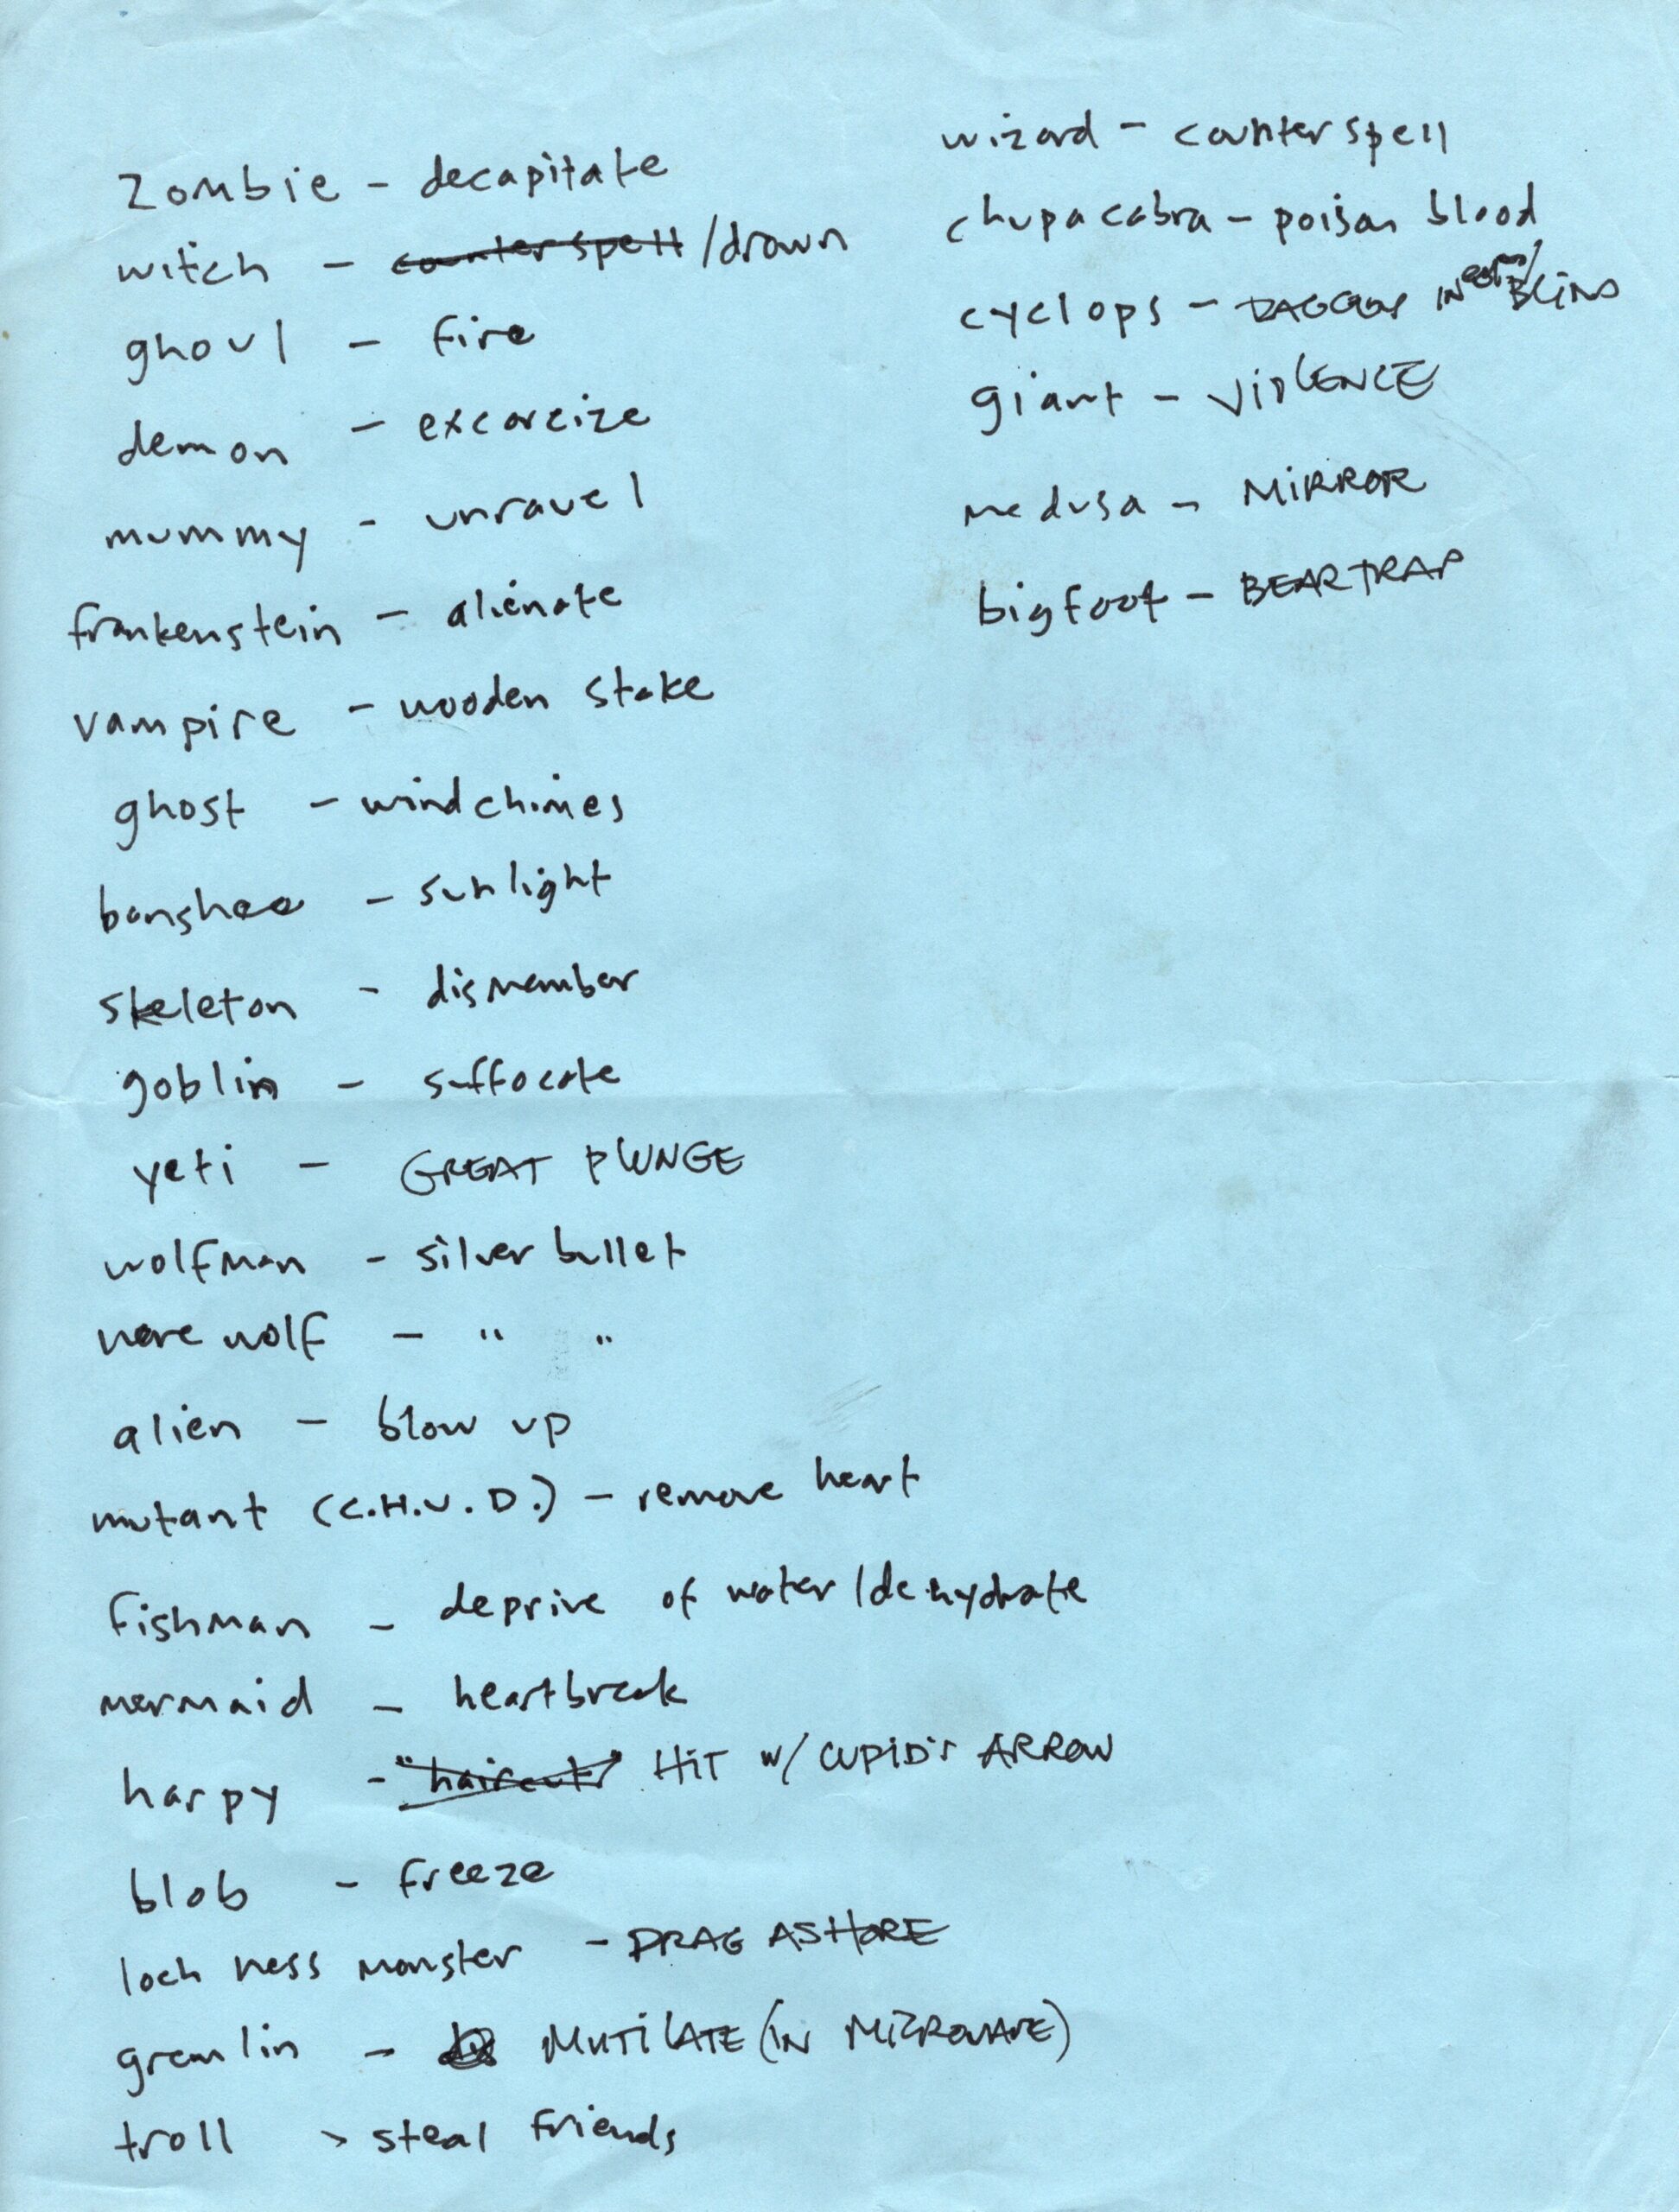 zombie - decapitate
witch - counterspell/drown
ghoul - fire
demon - excorcize
mummy - unravel
frankenstein - alienate
vampire - wooden stake
ghost - windchimes
banshee - sunlight
skeleton - dismember
goblin - suffocate
yeti - GREAT PLUNGE
wolfman - silver bullet
werewolf - " "
alien - blow up
mutant (C.H.U.D.) - remove heart
fishman - deprive of water/dehydrate
mermaid - heartbreak
harpy - "haircut" HIT w/ CUPID'S ARROW
blob - freeze
loch ness monster - DRAG ASHORE
gremlin - MUTILATE (IN MICROWAVE)
troll > steal friends
wizard - counterspell
chupacabra - poison blood
cyclops - DAGGER IN / BLIND
giant - VIOLENCE
medusa - MIRROR
bigfoot - BEARTRAP